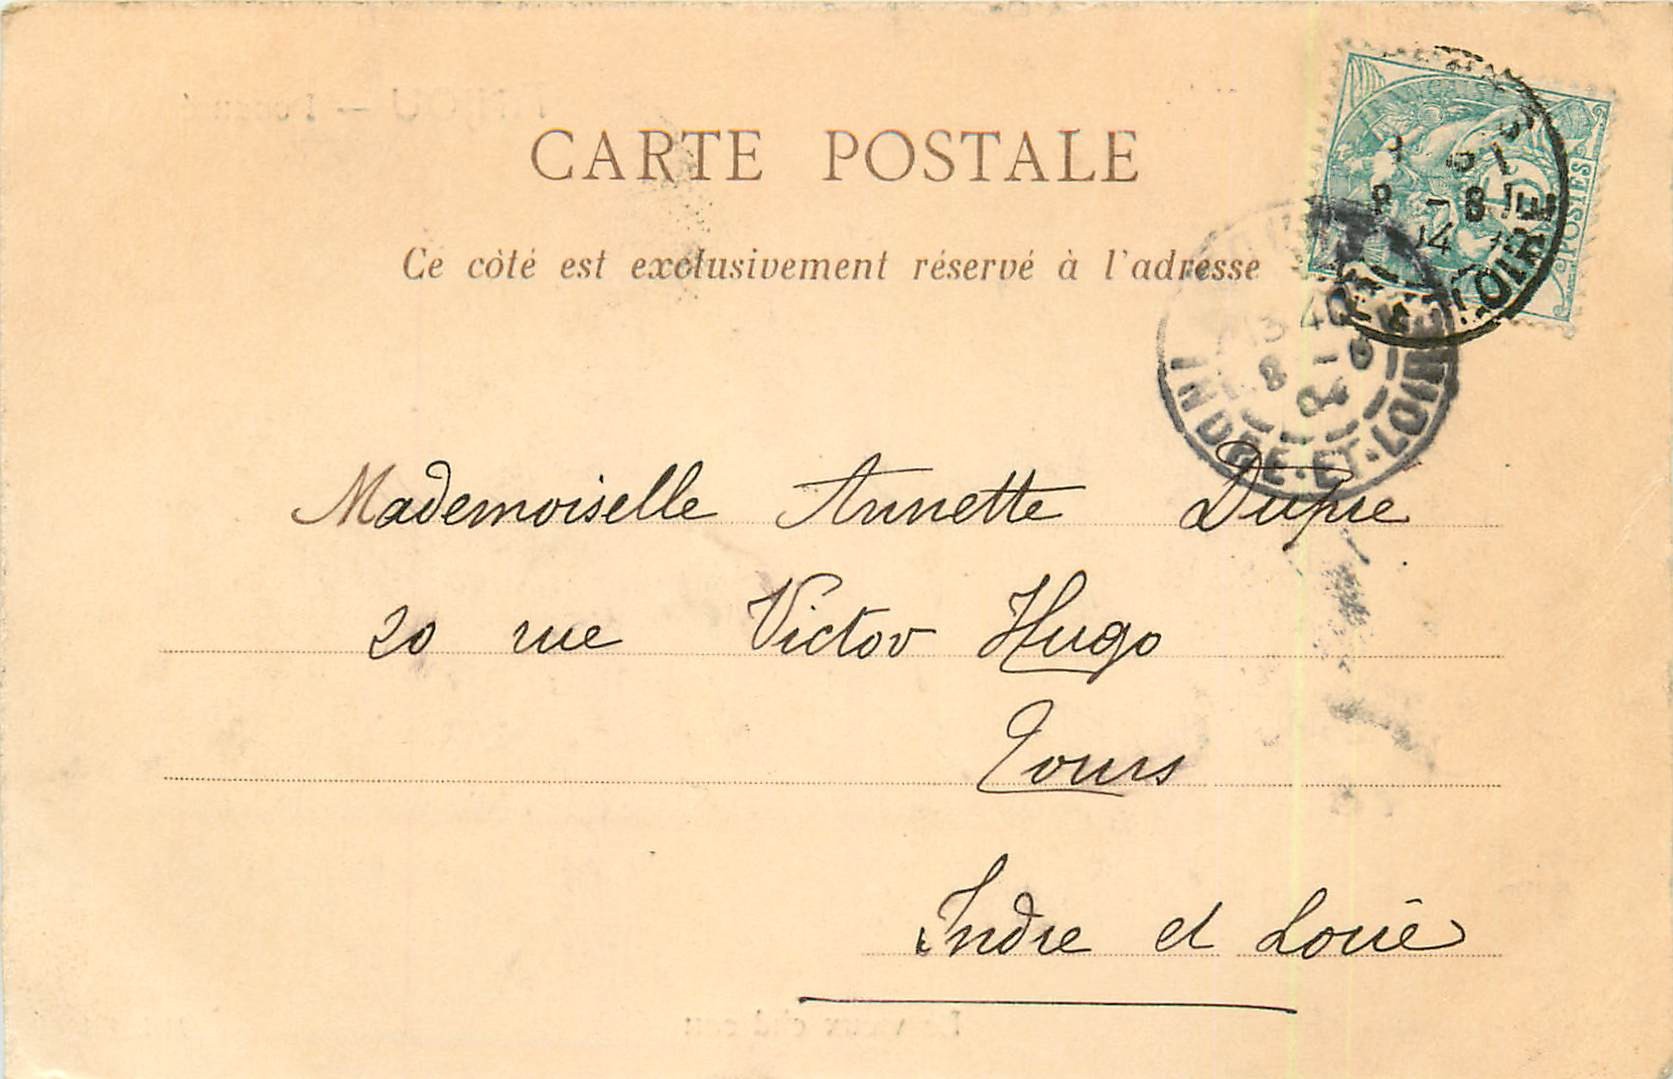 CARTE POSTALE
Ce côté est exclusivement réservé à l'adresse
POSTES
8 -8
04
LOIRE
13 40
8 -6
04
INDRE-ET-LOIRE
Mademoiselle Annette Dupre
20 rue Victor Hugo
Tours
Indre et Loire